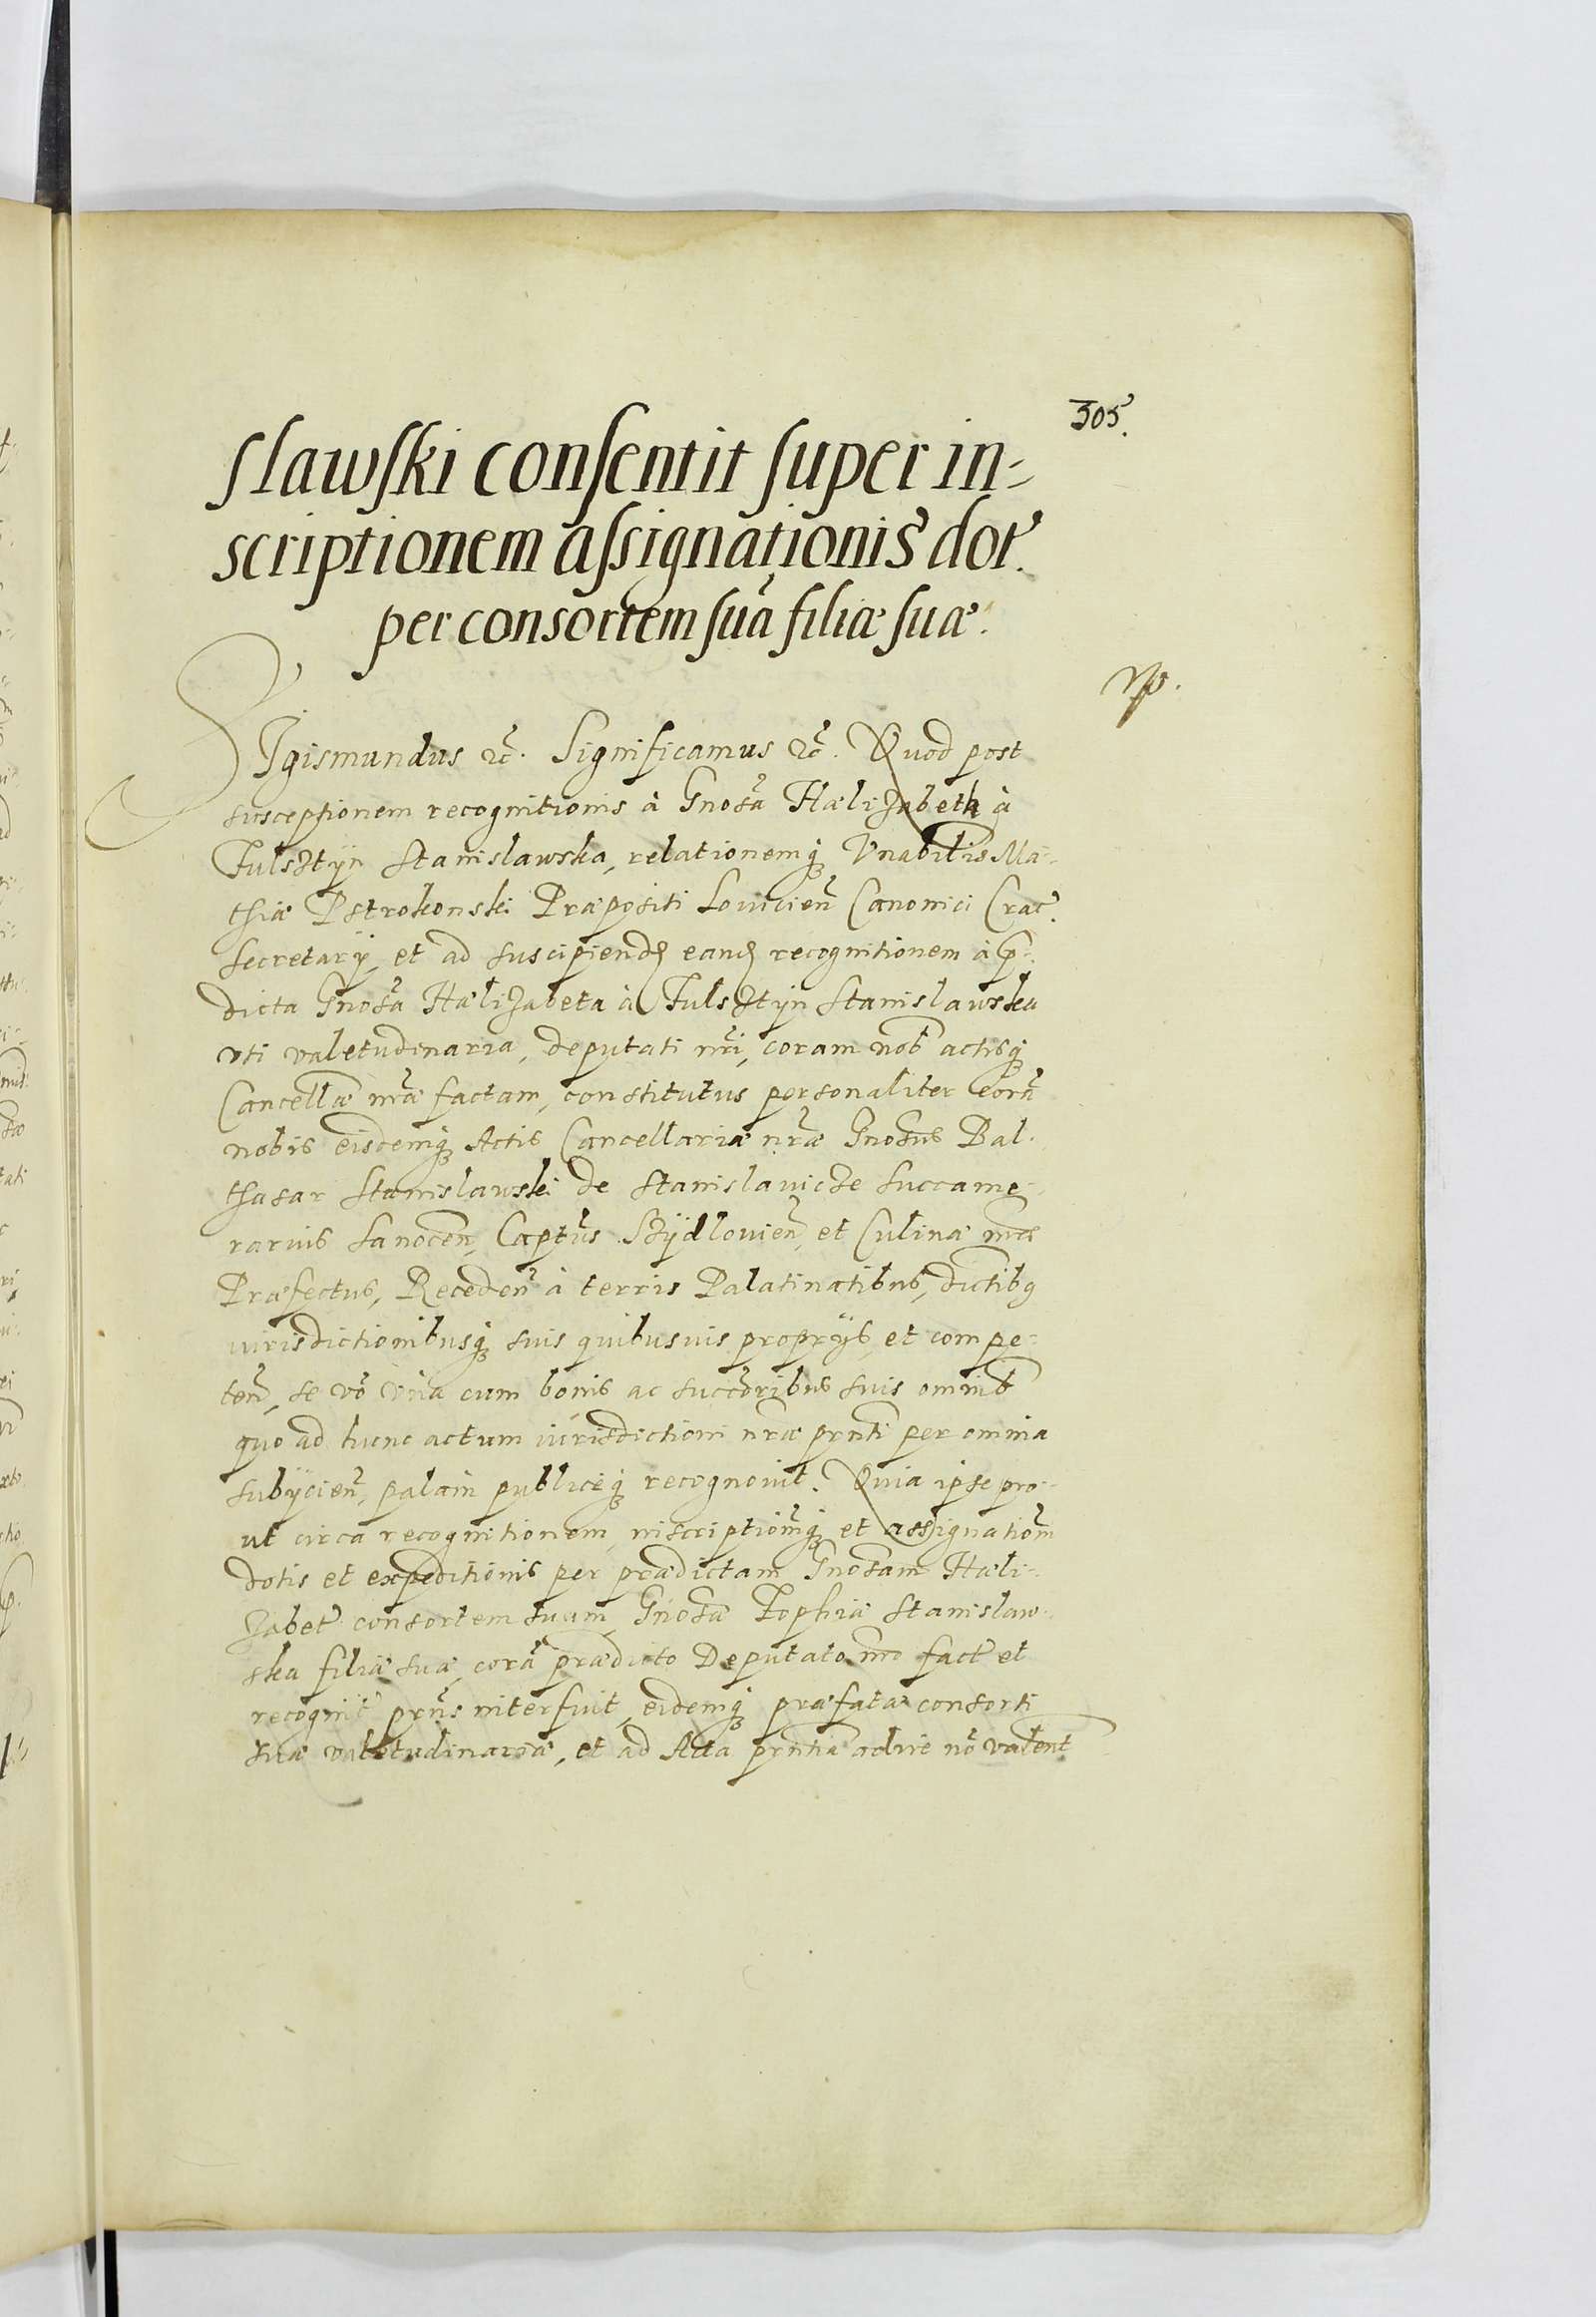 305.
slawski consentit super in-
scriptionem assignationis dot.
per consortem suã filiæ suæ.
Sigismundus &c. Significamus &c. Quod post
susceptionem recognitionis à Gnosa Hælizabeth à
Fulsztyn Stanislawska, relationemq; Vnabilis Ma-
thiæ Pstrokonski Præpositi Lovicien Canonici Crac.
Secretary, et ad suscipiend eand recognitionem à p-
dicta Gnosa Hælizabeta à Fulsztyn Stanislawska
vti valetudinaria, deputati nri, coram nob actisq;
Cancellæ nræ factam, constitutus personaliter corã
nobis eisdemq; Actis Cancellariæ nræ Gnosus Bal-
thasar Stanislawski de Stanislavicze Succame-
rarius Sanocen, Captus Szydlovien, et Culinæ nræ
Præfectus, Receden à terris Palatinatibus, dictibq
iurisdictionibusq; suis quibusuis proprys, et compe-
ten, se vo vna cum bonis ac succoribus suis omnib
quo ad hunc actum iurisdictioni nræ prnti per omnia
subycien, palam publiceq; recognovit. Quia ipse pro-
ut circa recognitionem, inscriptionq; et assignationm
dotis et expeditionis per prædictam Gnosam Hæli-
zabet consortem suam, Gnosæ Zophiæ Stanislaw-
ska filiæ suæ, corã prædicto Deputato nro fact et
recognit prns interfuit, eidemq; præfatæ consorti
suæ valetudinariæ, et ad Acta prntia adire nõ valent